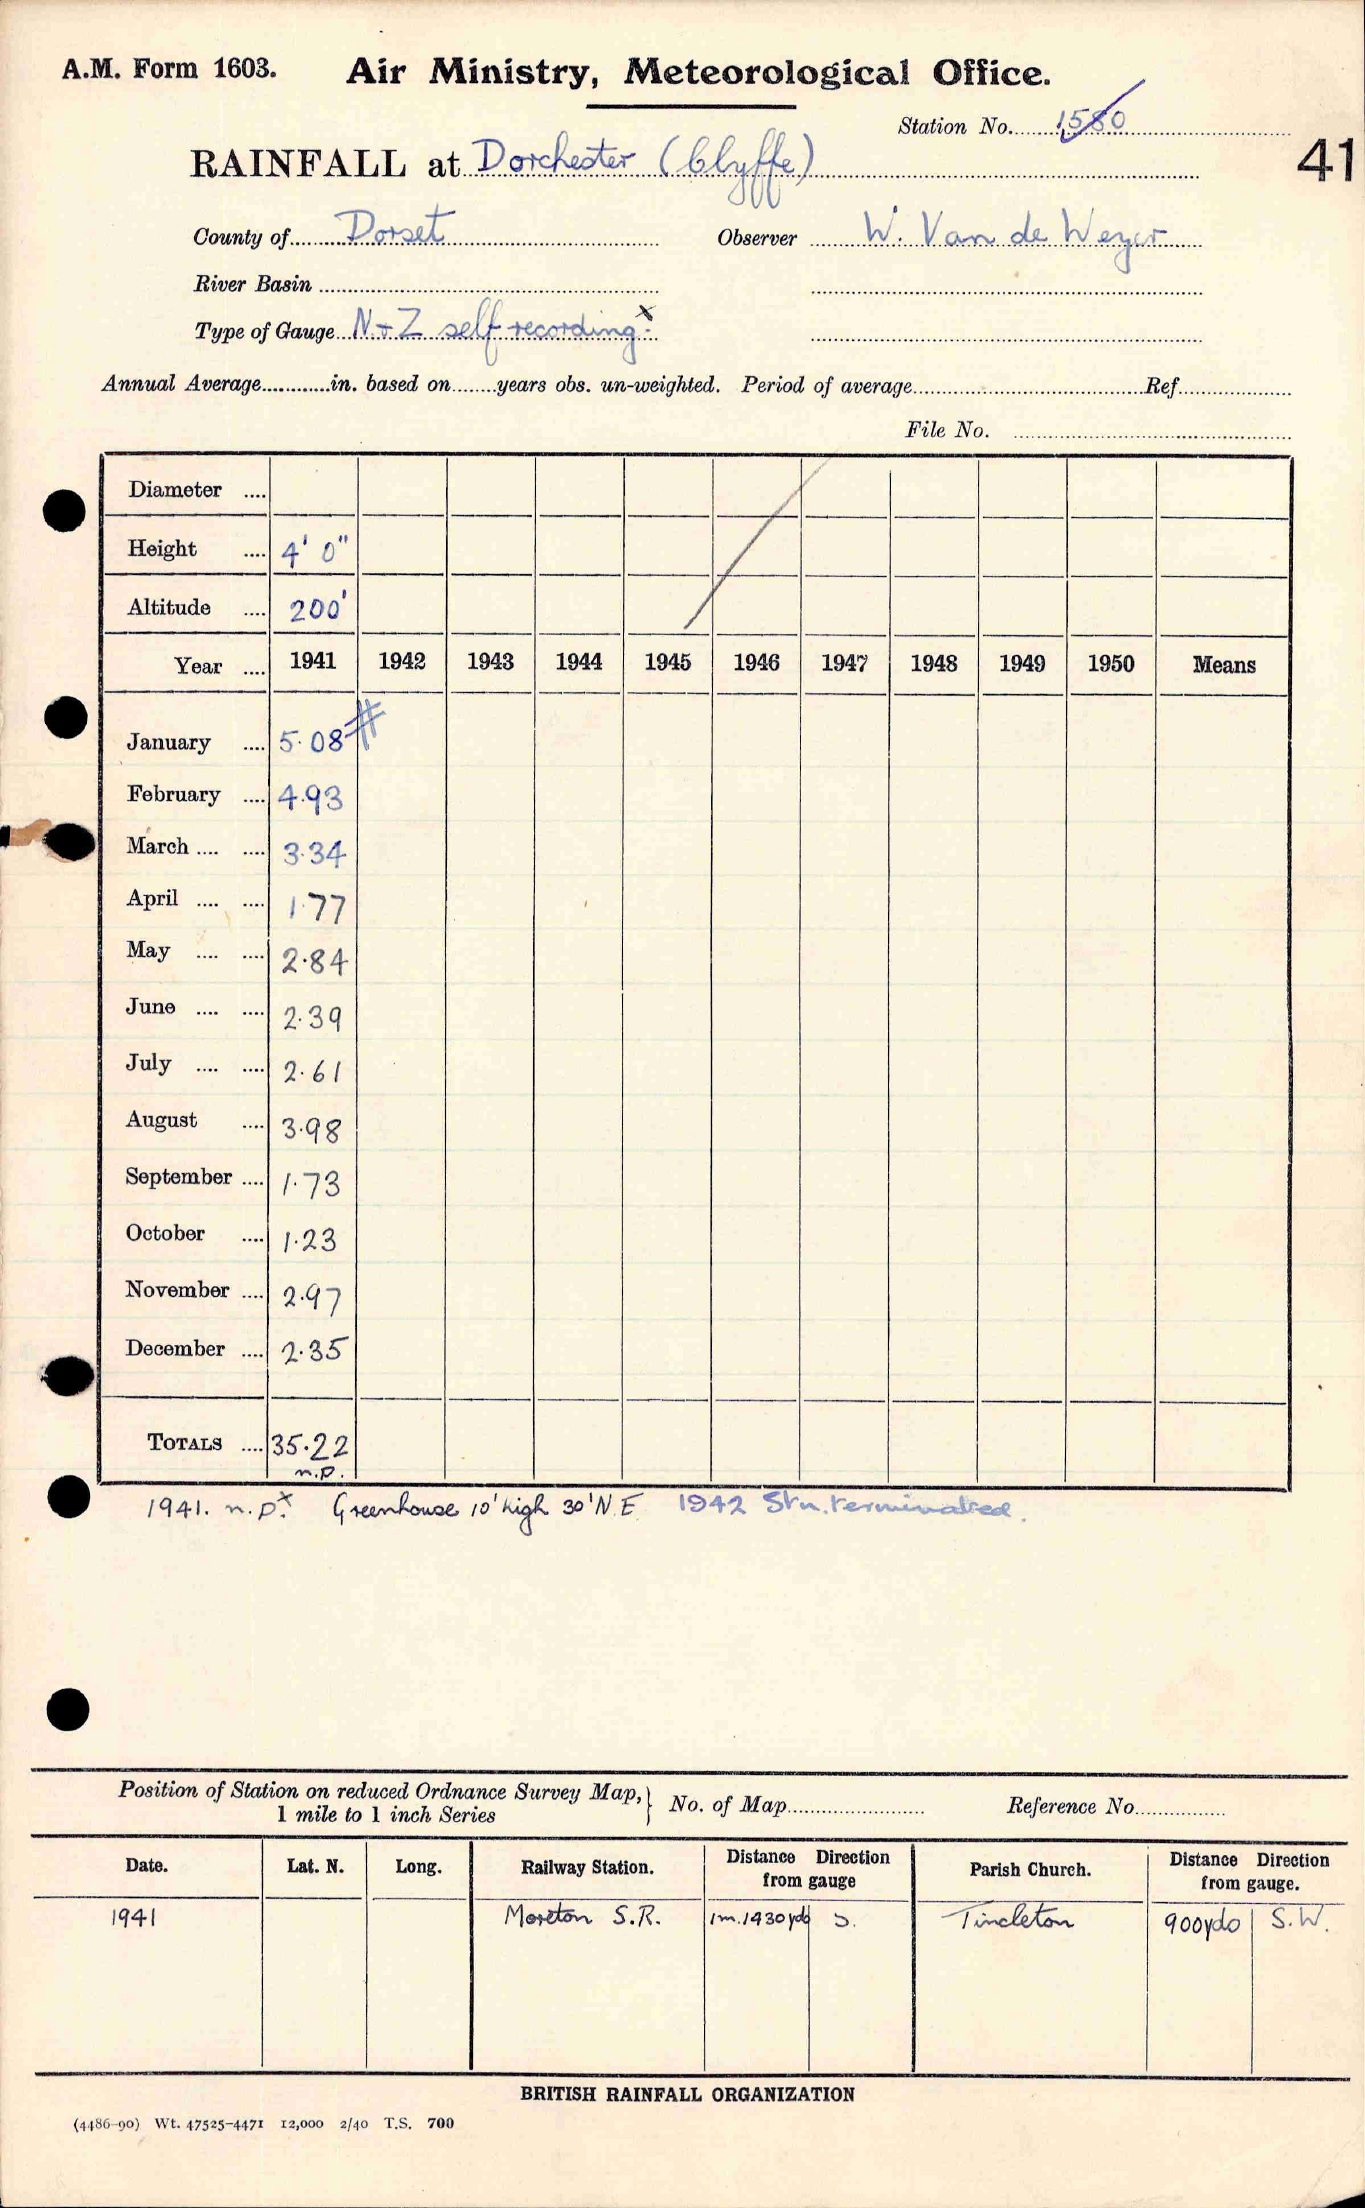 A.M. Form 1603. Air Ministry, Meteorological Office.
Station No. 1580
41
RAINFALL at Dorchester (Clyffe)
County of Dorset Observer W. Van de Weyer
River Basin
Type of Gauge N+Z self recording. x
Annual Average in. based on years obs. un-weighted. Period of average Ref
File No.
Diameter
Height 4' 0"
Altitude 200'
Year 1941 1942 1943 1944 1945 1946 1947 1948 1949 1950 Means
January 5.08 #
February 4.93
March 3.34
April 1.77
May 2.84
June 2.39
July 2.61
August 3.98
September 1.73
October 1.23
November 2.97
December 2.35
TOTALS 35.22
n.p.
1941. n.p. x Greenhouse 10' high 30' N.E. 1942 Stn. terminated.
Position of Station on reduced Ordnance Survey Map, } No. of Map Reference No.
1 mile to 1 inch Series
Date. Lat. N. Long. Railway Station. Distance Direction from gauge Parish Church. Distance Direction from gauge.
1941 Moreton S.R. 1m. 1430yds S. Tincleton 900yds S.W.
BRITISH RAINFALL ORGANIZATION
(4486-90) Wt. 47525-4471 12,000 2/40 T.S. 700